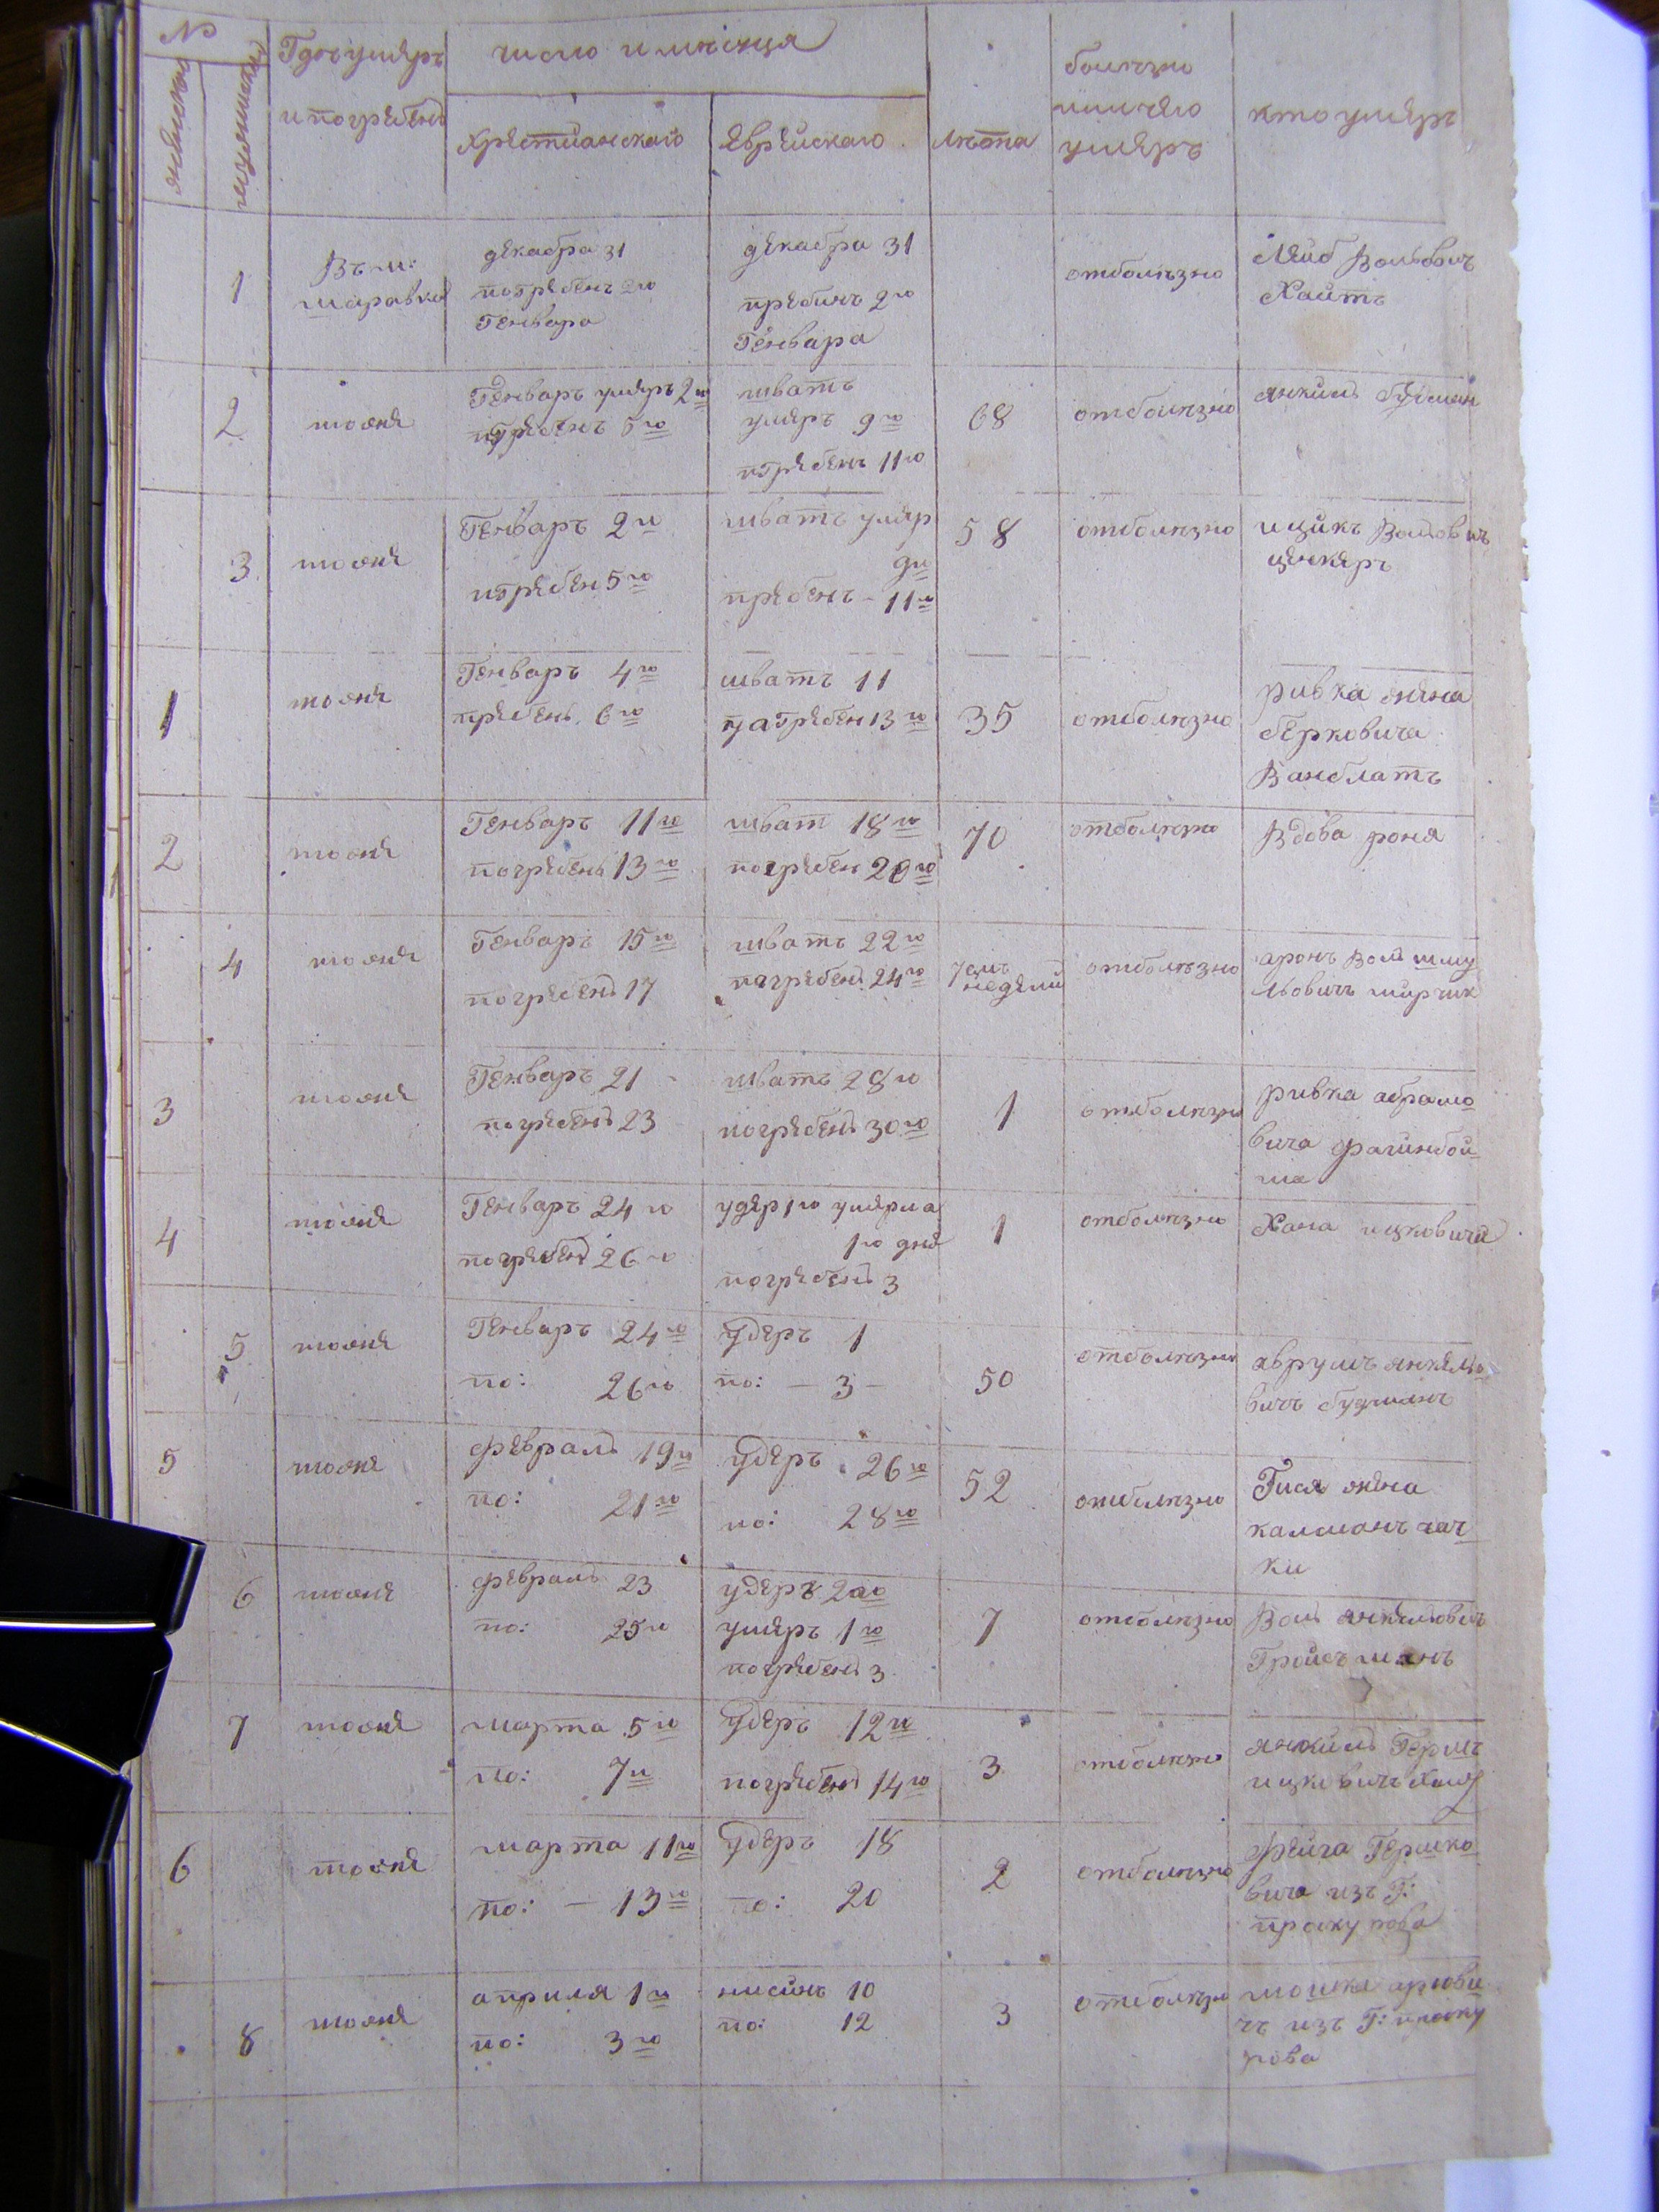 №
женскаго
мужескаго
Гдѣ умеръ
и погребенъ
число и мѣсяца
Хрестианскаго
Еврейскаго
лѣта
болѣзни
или чего
умеръ
кто умеръ
1
Въ м:
шаравки
декабра 31
погребенъ 2го
Генвара
декабра 31
пребинъ 2го
Генвара
отболѣзно
Лейб Волвовичъ
Хаитъ
2
тоже
Генваръ умеръ 2го
шватъ
умеръ 9го
пгребенъ 11го
68
отболѣзно
3
тоже
Генваръ 2го
пгребен 5го
шватъ умер
пребенъ - 11го
58
отболѣзно
ицикъ
1
тоже
Генваръ 4го
пребенъ 6го
шватъ 11
пагребен 13го
35
отболѣзно
ривка жена
берковича
Ванблатъ
2
тоже
Генваръ 11го
погребенъ 13го
шват 18го
погребен 20го
70
отболѣзно
Вдова роня
4
тоже
Генваръ 15го
погребень 17
шватъ 22го
пагребень 24го
7емъ
недели
отболѣзно
аронъ Вол шму
львовичъ
3
тоже
Генваръ 21
погребень 23
шватъ 28го
погребень 30го
1
отболѣзно
ривка абрамо
вича
4
тоже
Генваръ 24го
погребен 26го
удер 1го умерла
1го дня
погребень 3
1
отболѣзно
Хана ицковича
5
тоже
Генваръ 24го
по: 26го
удеръ 1
по: - 3 -
50
отболѣзно
аврумъ янкело
вичъ будманъ
5
тоже
февраль 19го
по: 21го
удеръ 26го
по: 28го
52
отболѣзно
Гися жена
калманъ кач
ки
6
тоже
февраль 23
по: 25го
удеръ 2го
умеръ 1го
погребень 3
7
отболѣзно
Вол янкелювичъ
Гройсъманъ
7
тоже
марта 5го
по: 7го
удеръ 12го
погребень 14го
3
отболѣзно
янкиль Гершъ
ицковичъ
6
тоже
марта 11го
по: - 13го
удеръ 18
по: 20
2
отболѣзно
фейга Гершко
вича изъ Г:
проскурова
8
тоже
априля 1го
по: 3го
нисинъ 10
по: 12
3
отболѣзно
мошка
чъ изъ Г: проску
рова